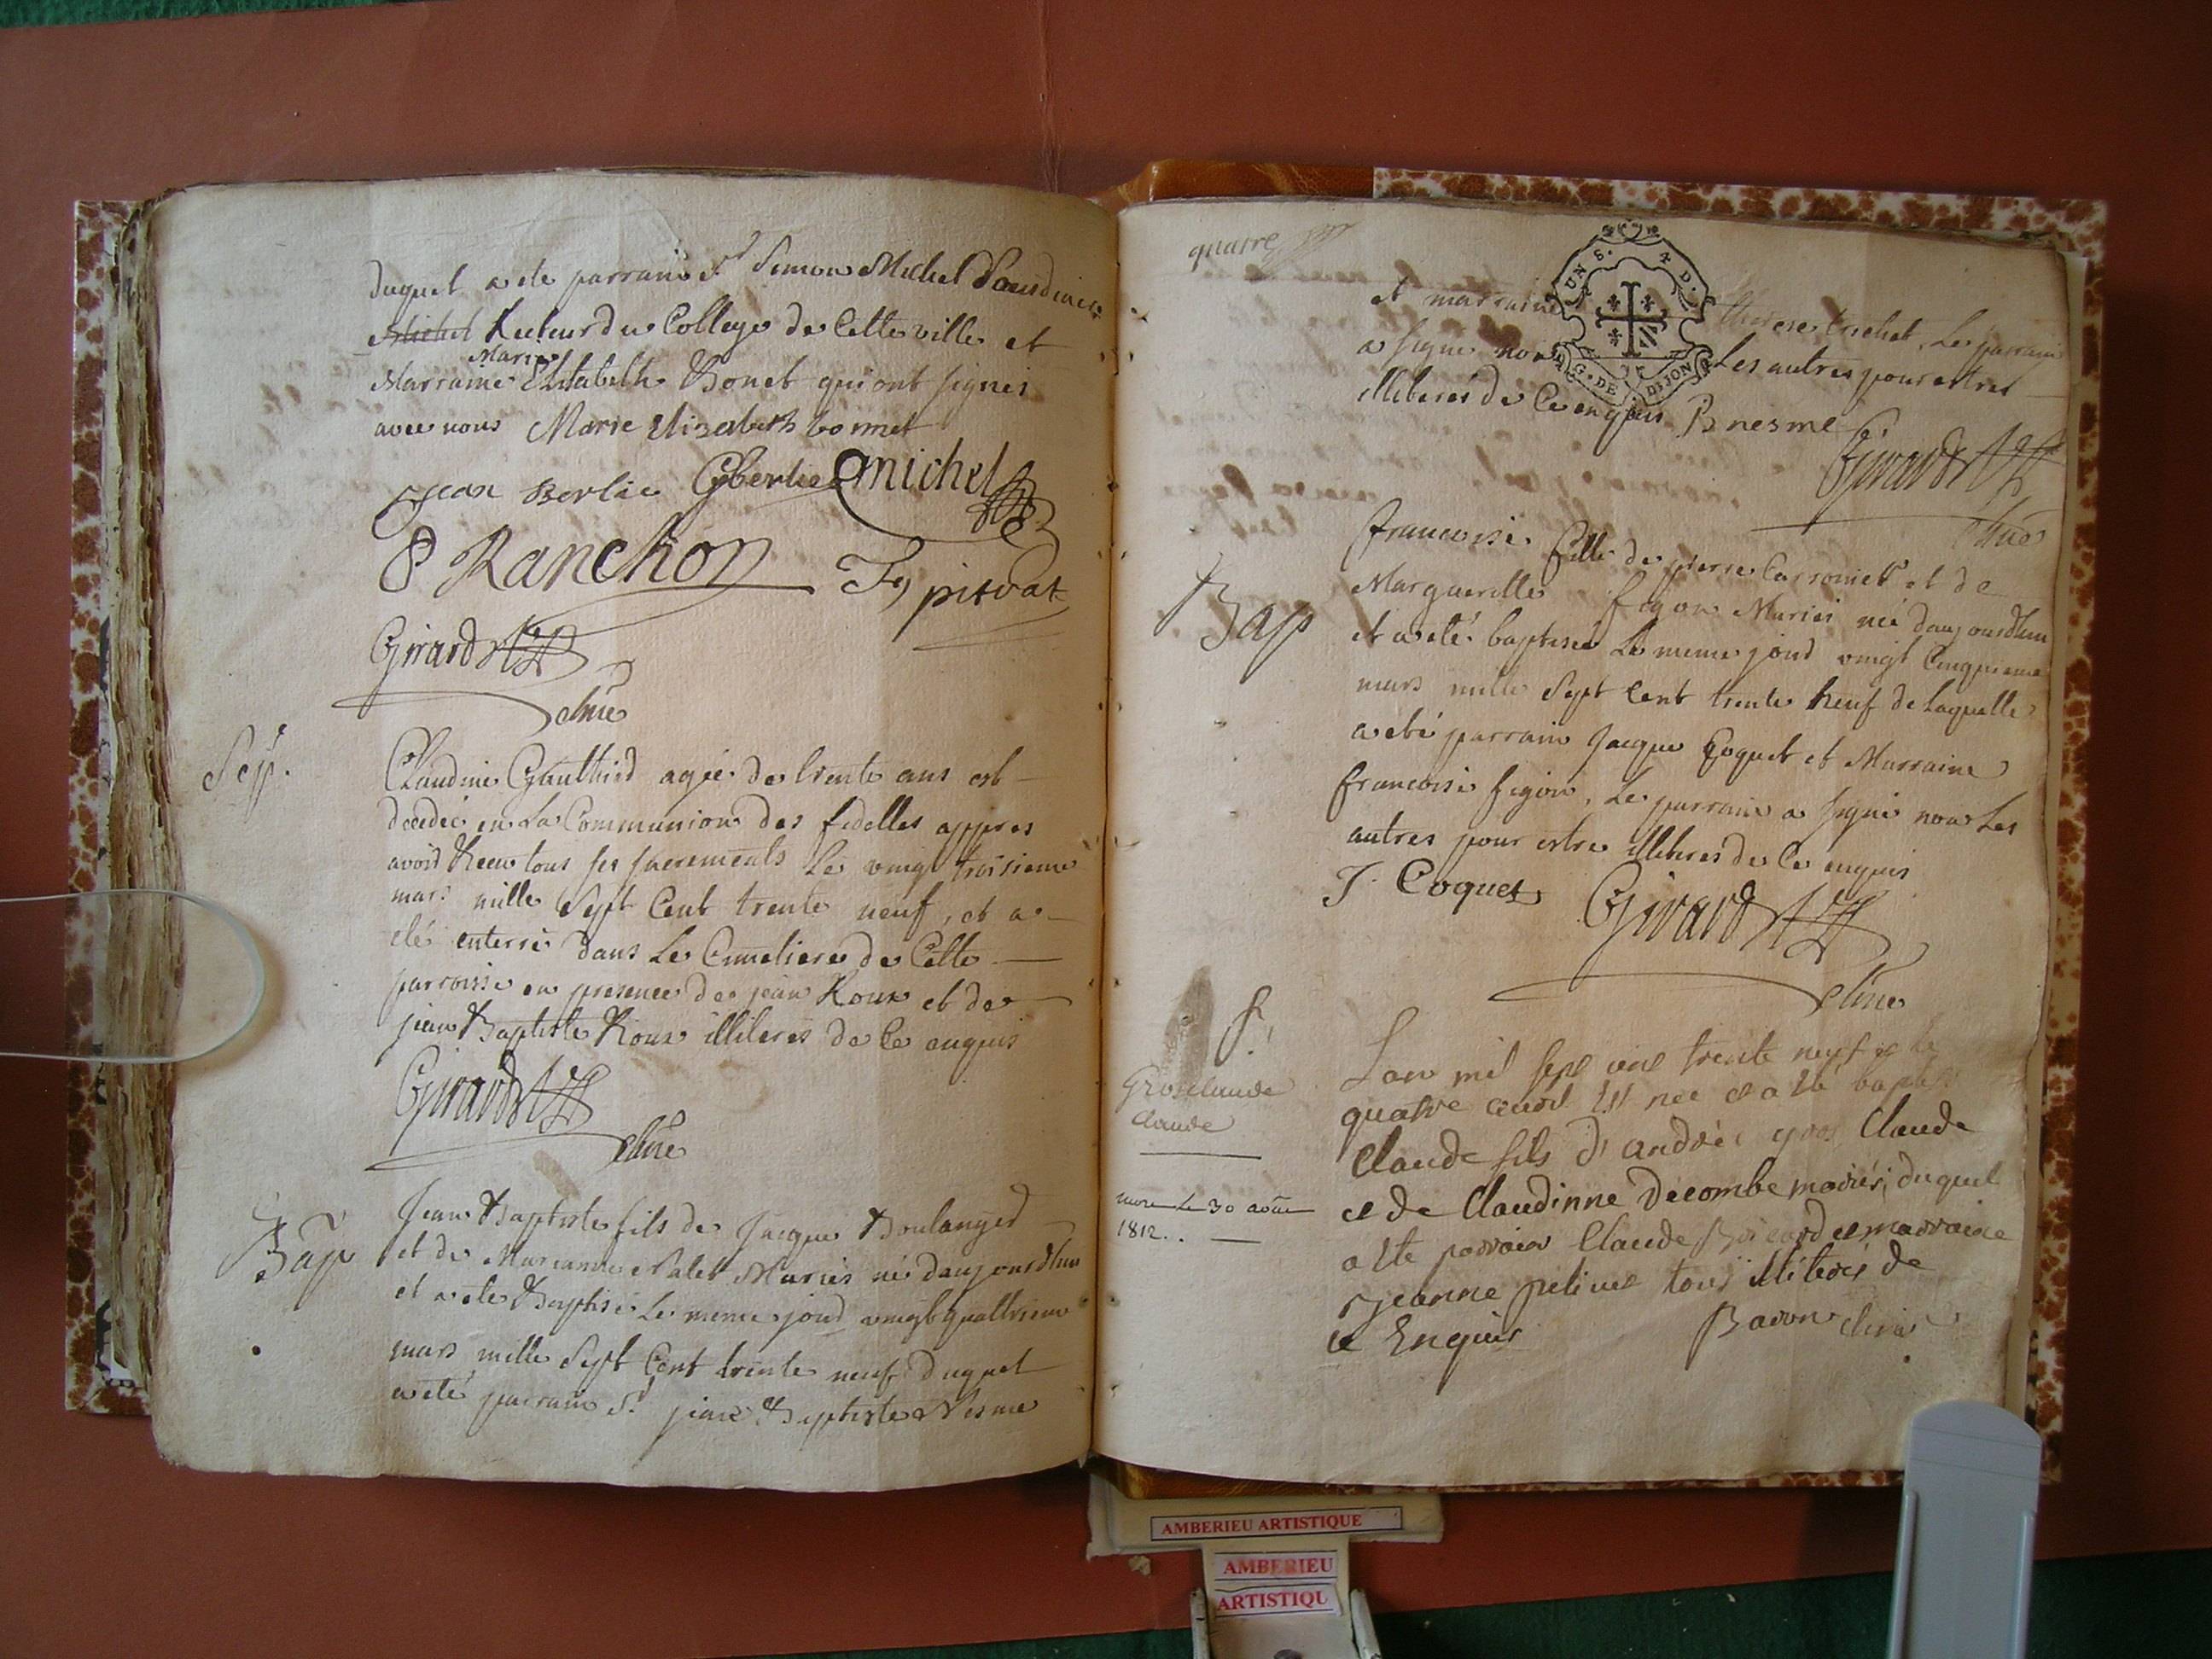 duquel a ete parrain Sr Simon Michel
Michel Recteur du College de Cette ville et
Marie
Marraine Elisabeth Bonet qui ont signés
avec nous Marie Elizabeth bonnet
Jean Berlie CBerlie Michel
P Ranchon
Girard
Sep.
Claudine Gauthier agée de trente ans est
decedée en La Communion des fidelles appres
avoir Receu tous ses sacrements Le vingt troisieme
mars mille Sept Cent trente neuf, et a
eté enterré dans Le Cimetiere de Cette
parroisse en presence de jean Roux et de
jean Baptiste Roux illiterés de Ce enquis
Girard
Bap
Jean Baptiste fils de Jacque Boulanger
et de Marianne Palet Mariés né daujourdhui
et a ete Baptisé Le meme jour vingt quattrieme
mars mille Sept Cent trente neuf duquel
a eté parrain Sr jean Baptiste Nesme
quatre
UN S. 4 D.
G. DE DIJON
et marraine therese trichet, Le parrain
a signé non Les autres pour estres
illiterés de Ce enquis B nesme
Girard
Bap
francoise fille de pierre Carronier et de
Margueritte figon Mariés née daujourdhui
et a eté baptisée Le meme jour vingt Cinquieme
mars mille Sept Cent trente Neuf de Laquelle
a eté parrain Jacque Coquet et Marraine
francoise figon, Le parrain a signé non Les
autres pour estre illiteres de Ce enquis
J. Coquet Girard
Groselaude
Claude
mort le 30 aout
1812..
Lan mil sept cent trente neuf et le
quatre avril Est née et a Eté baptisé
Claude fils d'andré gros Claude
et de Claudinne Decombe mariés, duquel
a Ete parrain Claude et marraine
Jeanne tous illiterés de
ce Enquis Baron
AMBERIEU ARTISTIQUE
AMBERIEU
ARTISTIQU